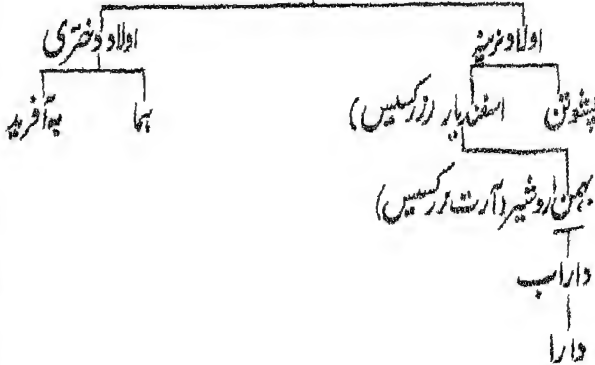 اولاد نرینہ اولاد دختری
پشوتن اسفندیار (زرکسیس) ہما بہ آفرید
بہمن اردشیر (آرت زرکسیس)
داراب
دارا